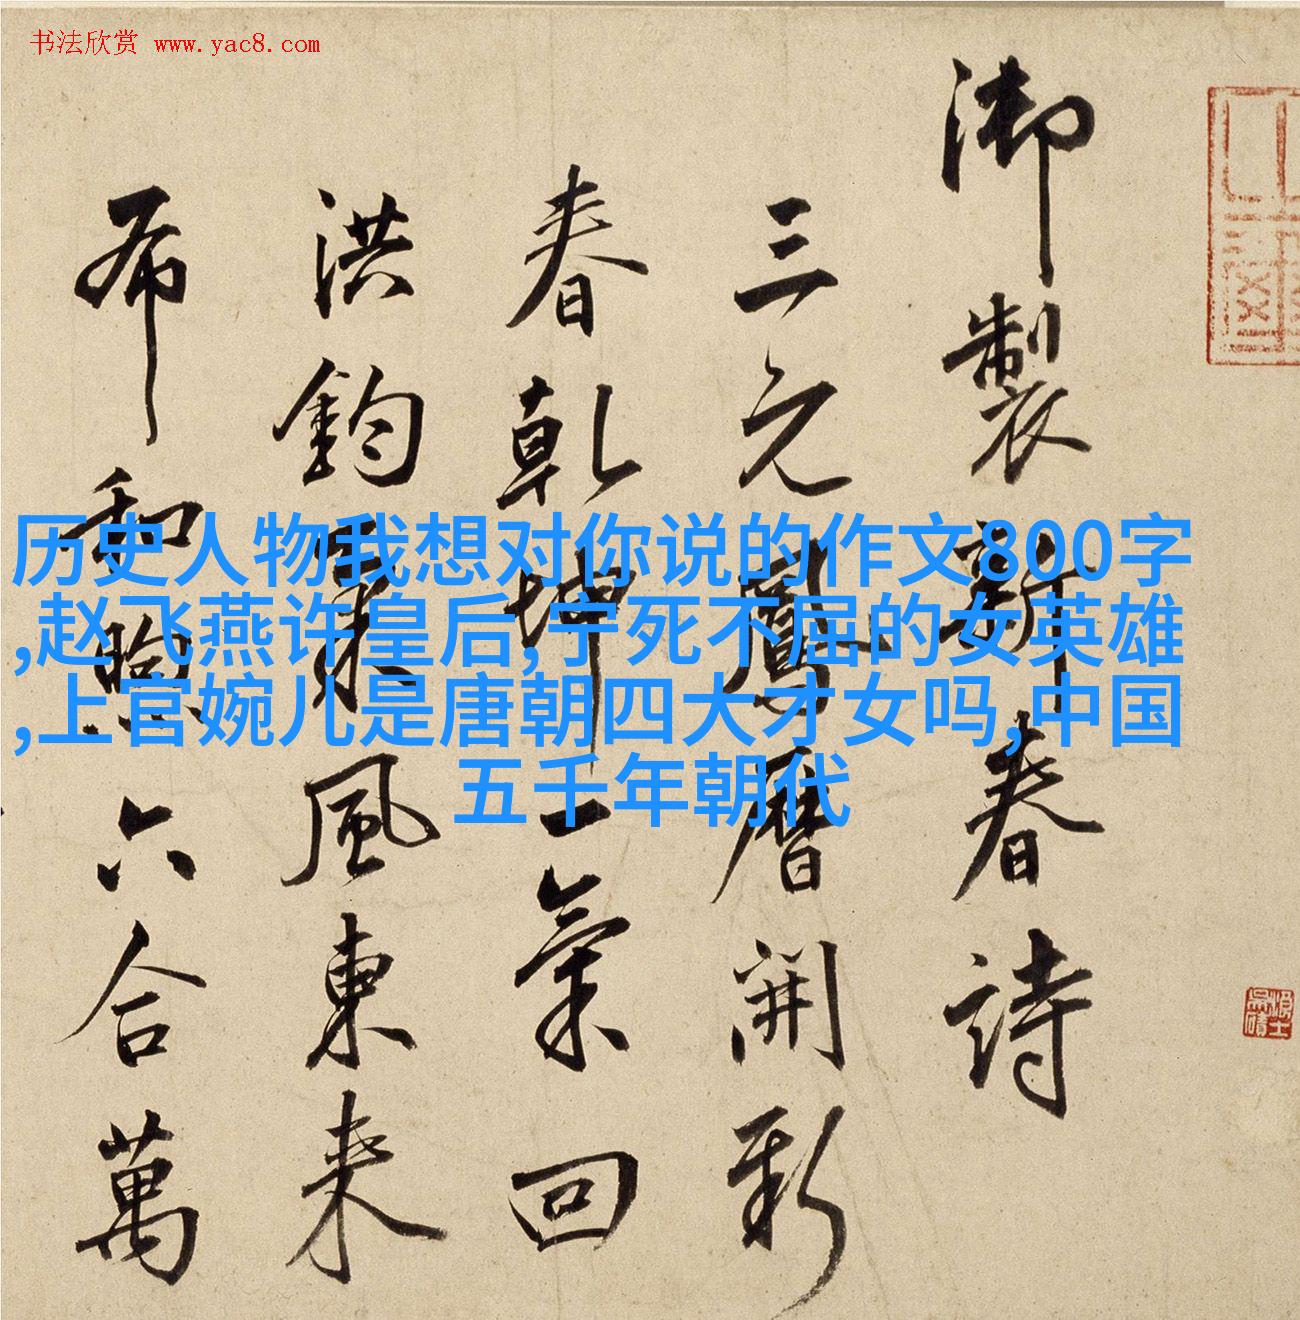 书法欣赏 www.yac8.com
御製新春詩
三元鳳曆開新
春乾坤一氣回
洪鈞風東来
布和煦六合萬
历史人物我想对你说的作文800字
,赵飞燕许皇后,宁死不屈的女英雄
,上官婉儿是唐朝四大才女吗,中国
五千年朝代